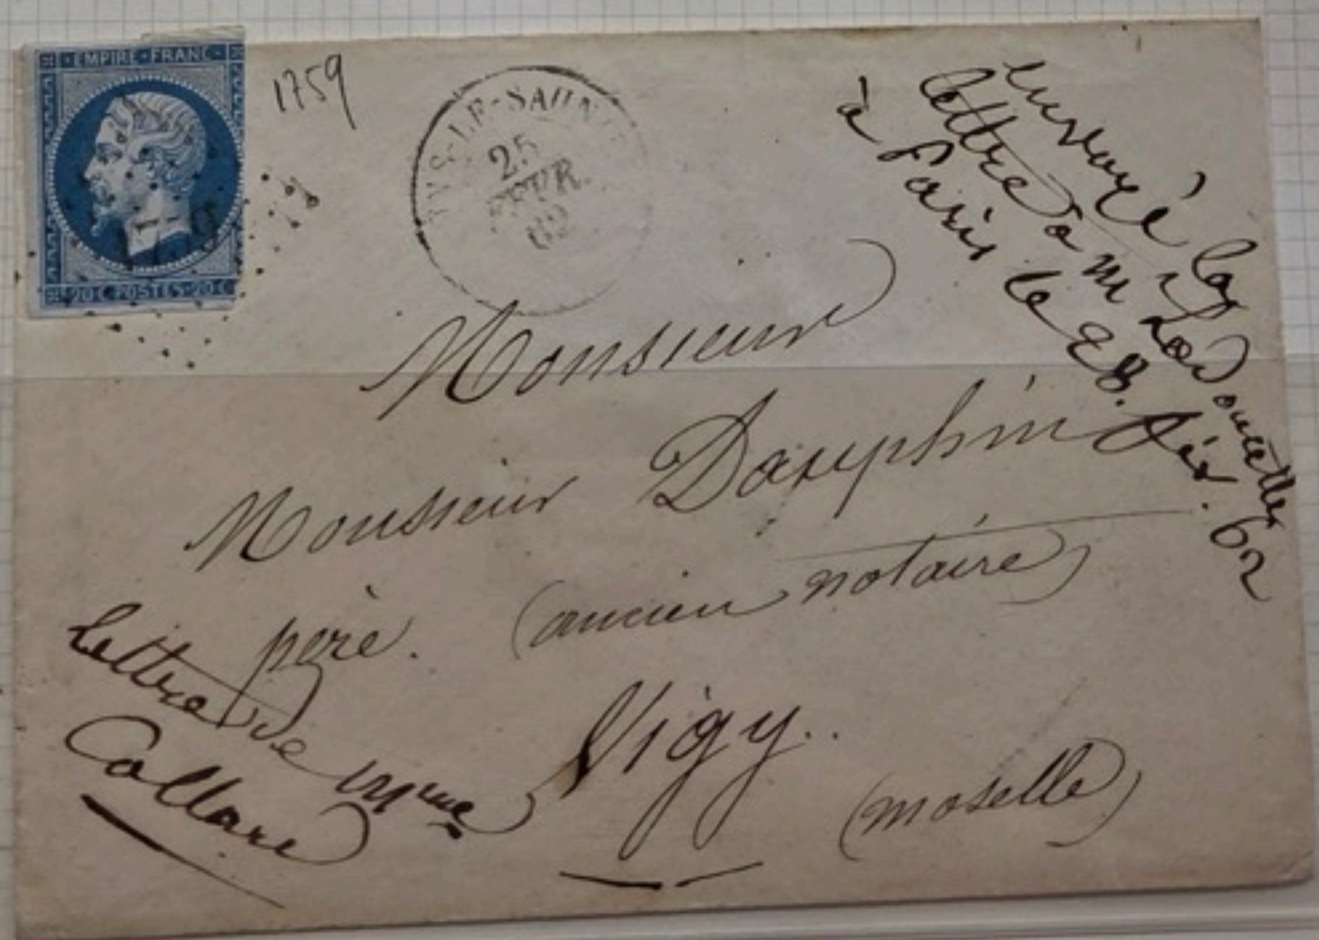 EMPIRE · FRANC ·
20 C POSTES 20 C
1759
YS-LE-SAUN
25
FEVR.
62
envoyé la
lettre à m Ladoucette
à Paris le 28. fév. 62
Monsieur
Monsieur Dauphin
père. (ancien notaire)
Vigy..
(moselle)
Lettre de mme